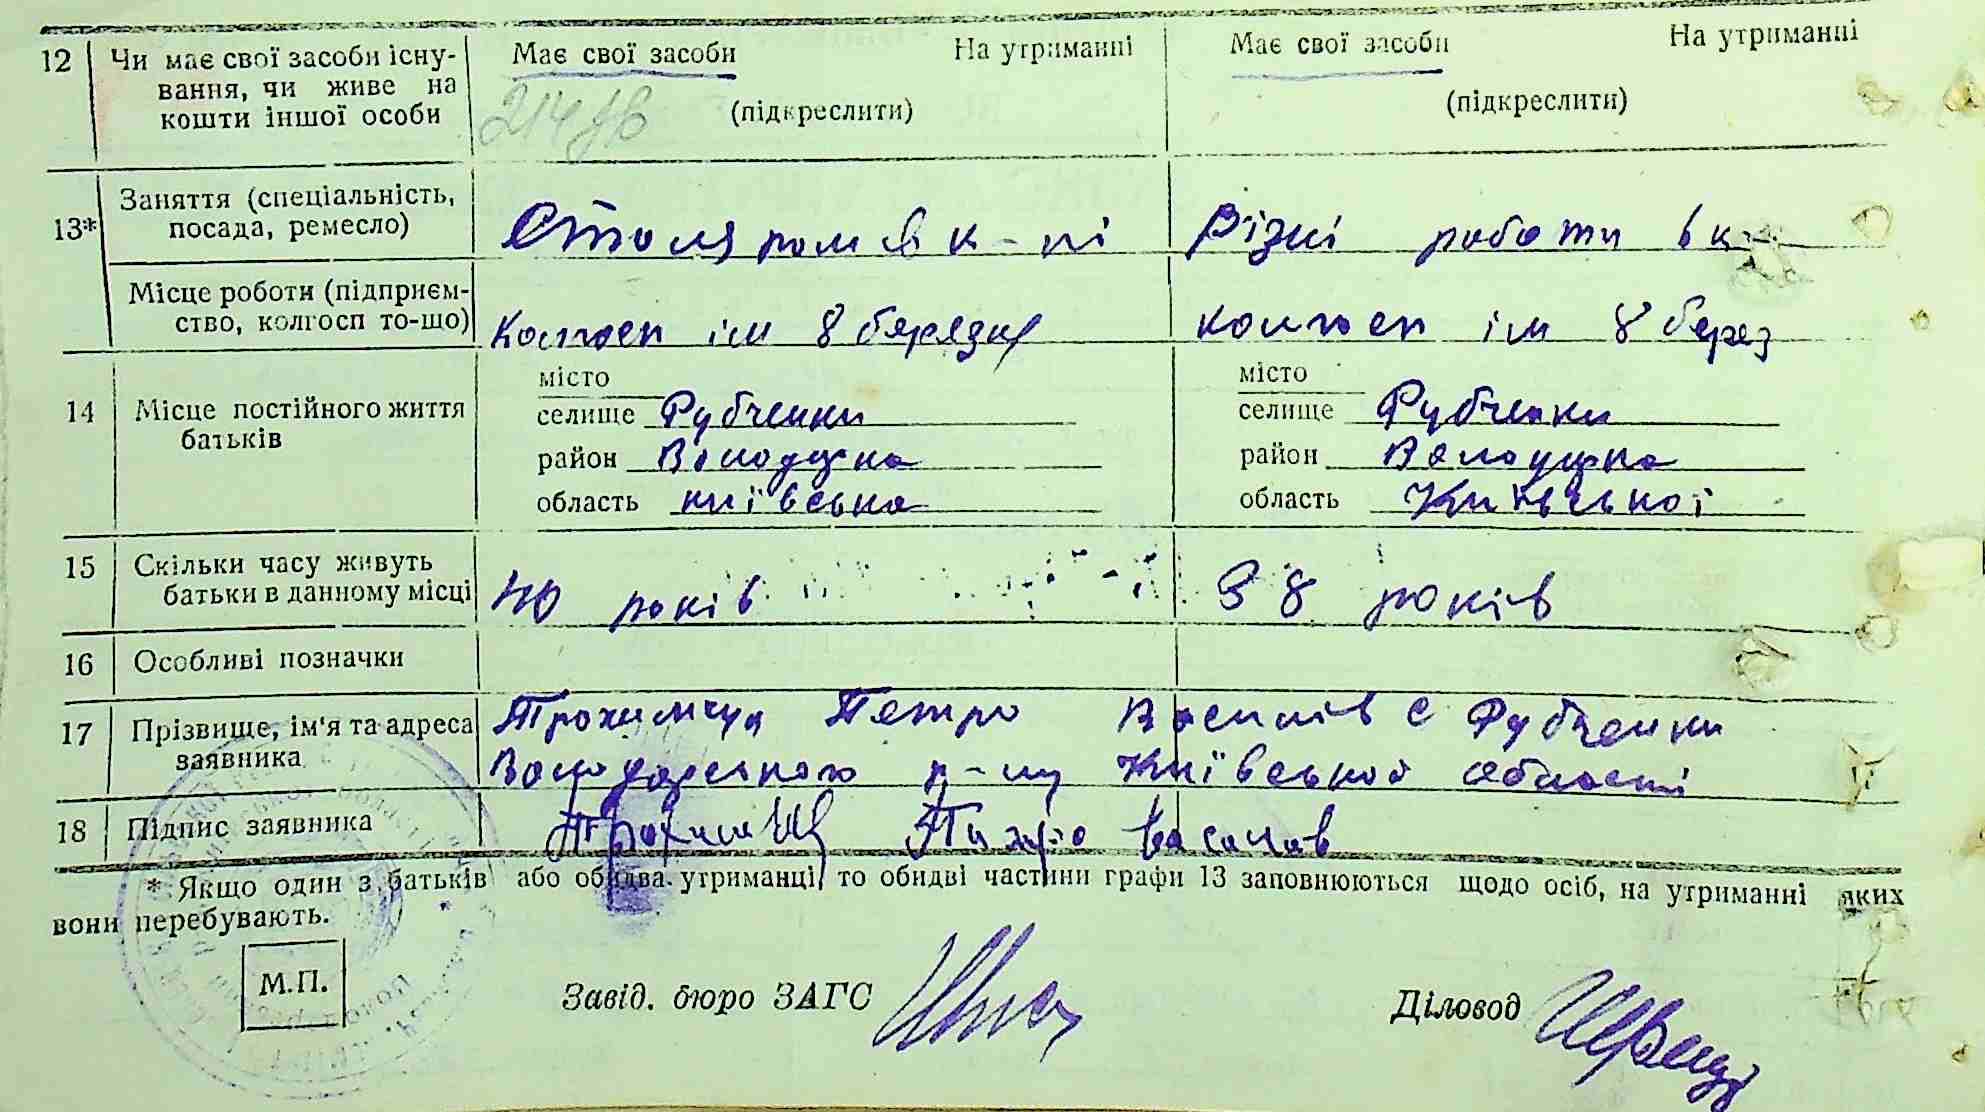 12 Чи має свої засоби існу- Має свої засоби На утриманні Має свої засоби На утриманні
вання, чи живе на
кошти іншої особи (підкреслити) (підкреслити)
Заняття (спеціальність,
13* посада, ремесло) Столяром в к-пі Різні роботи в к
Місце роботи (підприєм-
ство, колгосп то-що) Колгосп ім 8 березня колгосп ім 8 берез
місто місто
14 Місце постійного життя селище Рубченки селище Рубченки
батьків район Володарка район Володарка
область київська область Київської
15 Скільки часу живуть
батьки в данному місці 40 років 38 років
16 Особливі позначки
17 Прізвище, ім'я та адреса Трохимчук Петро Василів с Рубченки
заявника Володарського р-ну Київської області
18 Підпис заявника Петро Васильов
* Якщо один з батьків або обидва утриманці, то обидві частини графи 13 заповнюються щодо осіб, на утриманні яких
вони перебувають.
М.П. Завід. бюро ЗАГС Діловод